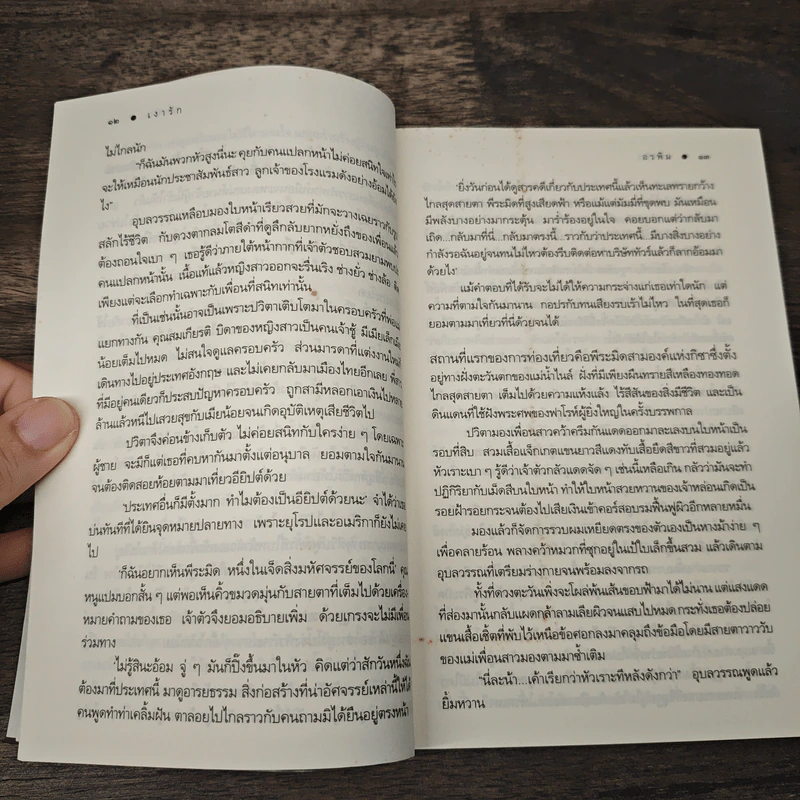 ๑๒ ● เงารัก
ไม่ไกลนัก
"ก็ฉันมันพวกหัวสูงนี่นะ คุยกับคนแปลกหน้าไม่ค่อยสนิทใจ
จะให้เหมือนนักประชาสัมพันธ์สาว ลูกเจ้าของโรงแรมดังอย่างอ้อมได้
ไง"
อุบลวรรณเหลือบมองใบหน้าเรียวสวยที่มักจะวางเฉยราวกับรูป
สลักไร้ชีวิต กับดวงตากลมโตสีดำที่ดูลึกลับยากหยั่งถึงของเพื่อนแล้ว
ต้องถอนใจเบา ๆ เธอรู้ดีว่าภายใต้หน้ากากที่เจ้าตัวชอบสวมยามพบ
คนแปลกหน้านั้น เนื้อแท้แล้วหญิงสาวออกจะรื่นเริง ช่างยั่ว ช่างล้อ
เพียงแต่จะเลือกทำเฉพาะกับเพื่อนที่สนิทเท่านั้น
ที่เป็นเช่นนั้นอาจเป็นเพราะปวิตาเติบโตมาในครอบครัวที่พ่อแม่
แยกทางกัน คุณสมเกียรติ บิดาของหญิงสาวเป็นคนเจ้าชู้ มีเมียเล็กเมีย
น้อยเต็มไปหมด ไม่สนใจดูแลครอบครัว ส่วนมารดาที่แต่งงานใหม่
เดินทางไปอยู่ประเทศอังกฤษ และไม่เคยกลับมาเมืองไทยอีกเลย
ที่มีอยู่คนเดียวก็ประสบปัญหาครอบครัว ถูกสามีหลอกเอาเงินไป
ล้านแล้วหนีไปเสวยสุขกับเมียน้อยจนเกิดอุบัติเหตุเสียชีวิตไป
ปวิตาจึงค่อนข้างเก็บตัว ไม่ค่อยสนิทกับใครง่าย ๆ โดยเฉพาะ
ผู้ชาย จะมีก็แต่เธอที่คบหากันมาตั้งแต่อนุบาล ยอมตามใจกันมานาน
จนต้องติดสอยห้อยตามมาเที่ยวอียิปต์ด้วย
'ประเทศอื่นก็มีตั้งมาก ทำไมต้องเป็นอียิปต์ด้วยนะ' จำได้ว่าเธอ
บ่นทันทีที่ได้ยินจุดหมายปลายทาง เพราะยุโรปและอเมริกาก็ยังไม่เคย
ไป
'ก็ฉันอยากเห็นพีระมิด หนึ่งในเจ็ดสิ่งมหัศจรรย์ของโลกนี่' คุณ
หนูแปมบอกสั้น ๆ แต่พอเห็นคิ้วขมวดมุ่นกับสายตาที่เต็มไปด้วยเครื่อง
หมายคำถามของเธอ เจ้าตัวจึงยอมอธิบายเพิ่ม ด้วยเกรงจะไม่มีเพื่อน
ร่วมทาง
'ไม่รู้สินะอ้อม จู่ ๆ มันก็ปิ๊งขึ้นมาในหัว คิดแต่ว่าสักวันหนึ่งฉัน
ต้องมาที่ประเทศนี้ มาดูอารยธรรม สิ่งก่อสร้างที่น่าอัศจรรย์เหล่านี้ให้ได้'
คนพูดทำท่าเคลิ้มฝัน ตาลอยไปไกลราวกับคนถามมิได้ยืนอยู่ตรงหน้า
อรพิม ● ๑๓
'ยิ่งวันก่อนได้ดูสารคดีเกี่ยวกับประเทศนี้แล้วเห็นทะเลทรายกว้าง
ไกลสุดสายตา พีระมิดที่สูงเสียดฟ้า หรือแม้แต่มัมมี่ที่ขุดพบ มันเหมือน
มีพลังบางอย่างมากระตุ้น มาร่ำร้องอยู่ในใจ คอยบอกแต่ว่ากลับมา
เถิด...กลับมาที่นี่...กลับมาตรงนี้...ราวกับว่าประเทศนี้...มีบางสิ่งบางอย่าง
กำลังรอฉันอยู่จนทนไม่ไหวต้องรีบติดต่อหาบริษัททัวร์แล้วก็ลากอ้อมมา
ด้วยไง'
แม้คำตอบที่ได้รับจะไม่ได้ให้ความกระจ่างแก่เธอเท่าใดนัก แต่
ความที่ตามใจกันมานาน กอปรกับทนเสียงรบเร้าไม่ไหว ในที่สุดเธอก็
ยอมตามมาเที่ยวที่นี่ด้วยจนได้
สถานที่แรกของการท่องเที่ยวคือพีระมิดสามองค์แห่งกิซาซึ่งตั้ง
อยู่ทางฝั่งตะวันตกของแม่น้ำไนล์ ฝั่งที่มีเพียงผืนทรายสีเหลืองทองทอด
ไกลสุดสายตา เต็มไปด้วยความแห้งแล้ง ไร้สีสันของสิ่งมีชีวิต และเป็น
ดินแดนที่ใช้ฝังพระศพของฟาโรห์ผู้ยิ่งใหญ่ในครั้งบรรพกาล
ปวิตามองเพื่อนสาวคว้าครีมกันแดดออกมาละเลงบนใบหน้าเป็น
รอบที่สิบ สวมเสื้อแจ็กเกตแขนยาวสีแดงทับเสื้อยืดสีขาวที่สวมอยู่แล้ว
หัวเราะเบา ๆ รู้ดีว่าเจ้าตัวกลัวแดดจัด ๆ เช่นนี้เหลือเกิน กลัวว่ามันจะทำ
ปฏิกิริยากับเม็ดสีบนใบหน้า ทำให้ใบหน้าสวยหวานของเจ้าหล่อนเกิดเป็น
รอยฝ้ารอยกระจนต้องไปเสียเงินเข้าคอร์สอบรมฟื้นฟูผิวอีกหลายหมื่น
มองแล้วก็จัดการรวบผมเหยียดตรงของตัวเองเป็นหางม้าง่าย ๆ
เพื่อคลายร้อน พลางคว้าหมวกที่ซุกอยู่ในเป้ใบเล็กขึ้นสวม แล้วเดินตาม
อุบลวรรณที่เตรียมร่างกายจนพร้อมลงจากรถ
ทั้งที่ดวงตะวันเพิ่งจะโผล่พ้นเส้นขอบฟ้ามาได้ไม่นาน แต่แสงแดด
ที่ส่องมานั้นกลับแผดกล้าลามเลียผิวจนแสบไปหมด กระทั่งเธอต้องปล่อย
แขนเสื้อเชิ้ตที่พับไว้เหนือข้อศอกลงมาคลุมถึงข้อมือโดยมีสายตาวาววับ
ของแม่เพื่อนสาวมองตามมาซ้ำเติม
"นี่ละน้า...เค้าเรียกว่าหัวเราะทีหลังดังกว่า" อุบลวรรณพูดแล้ว
ยิ้มหวาน